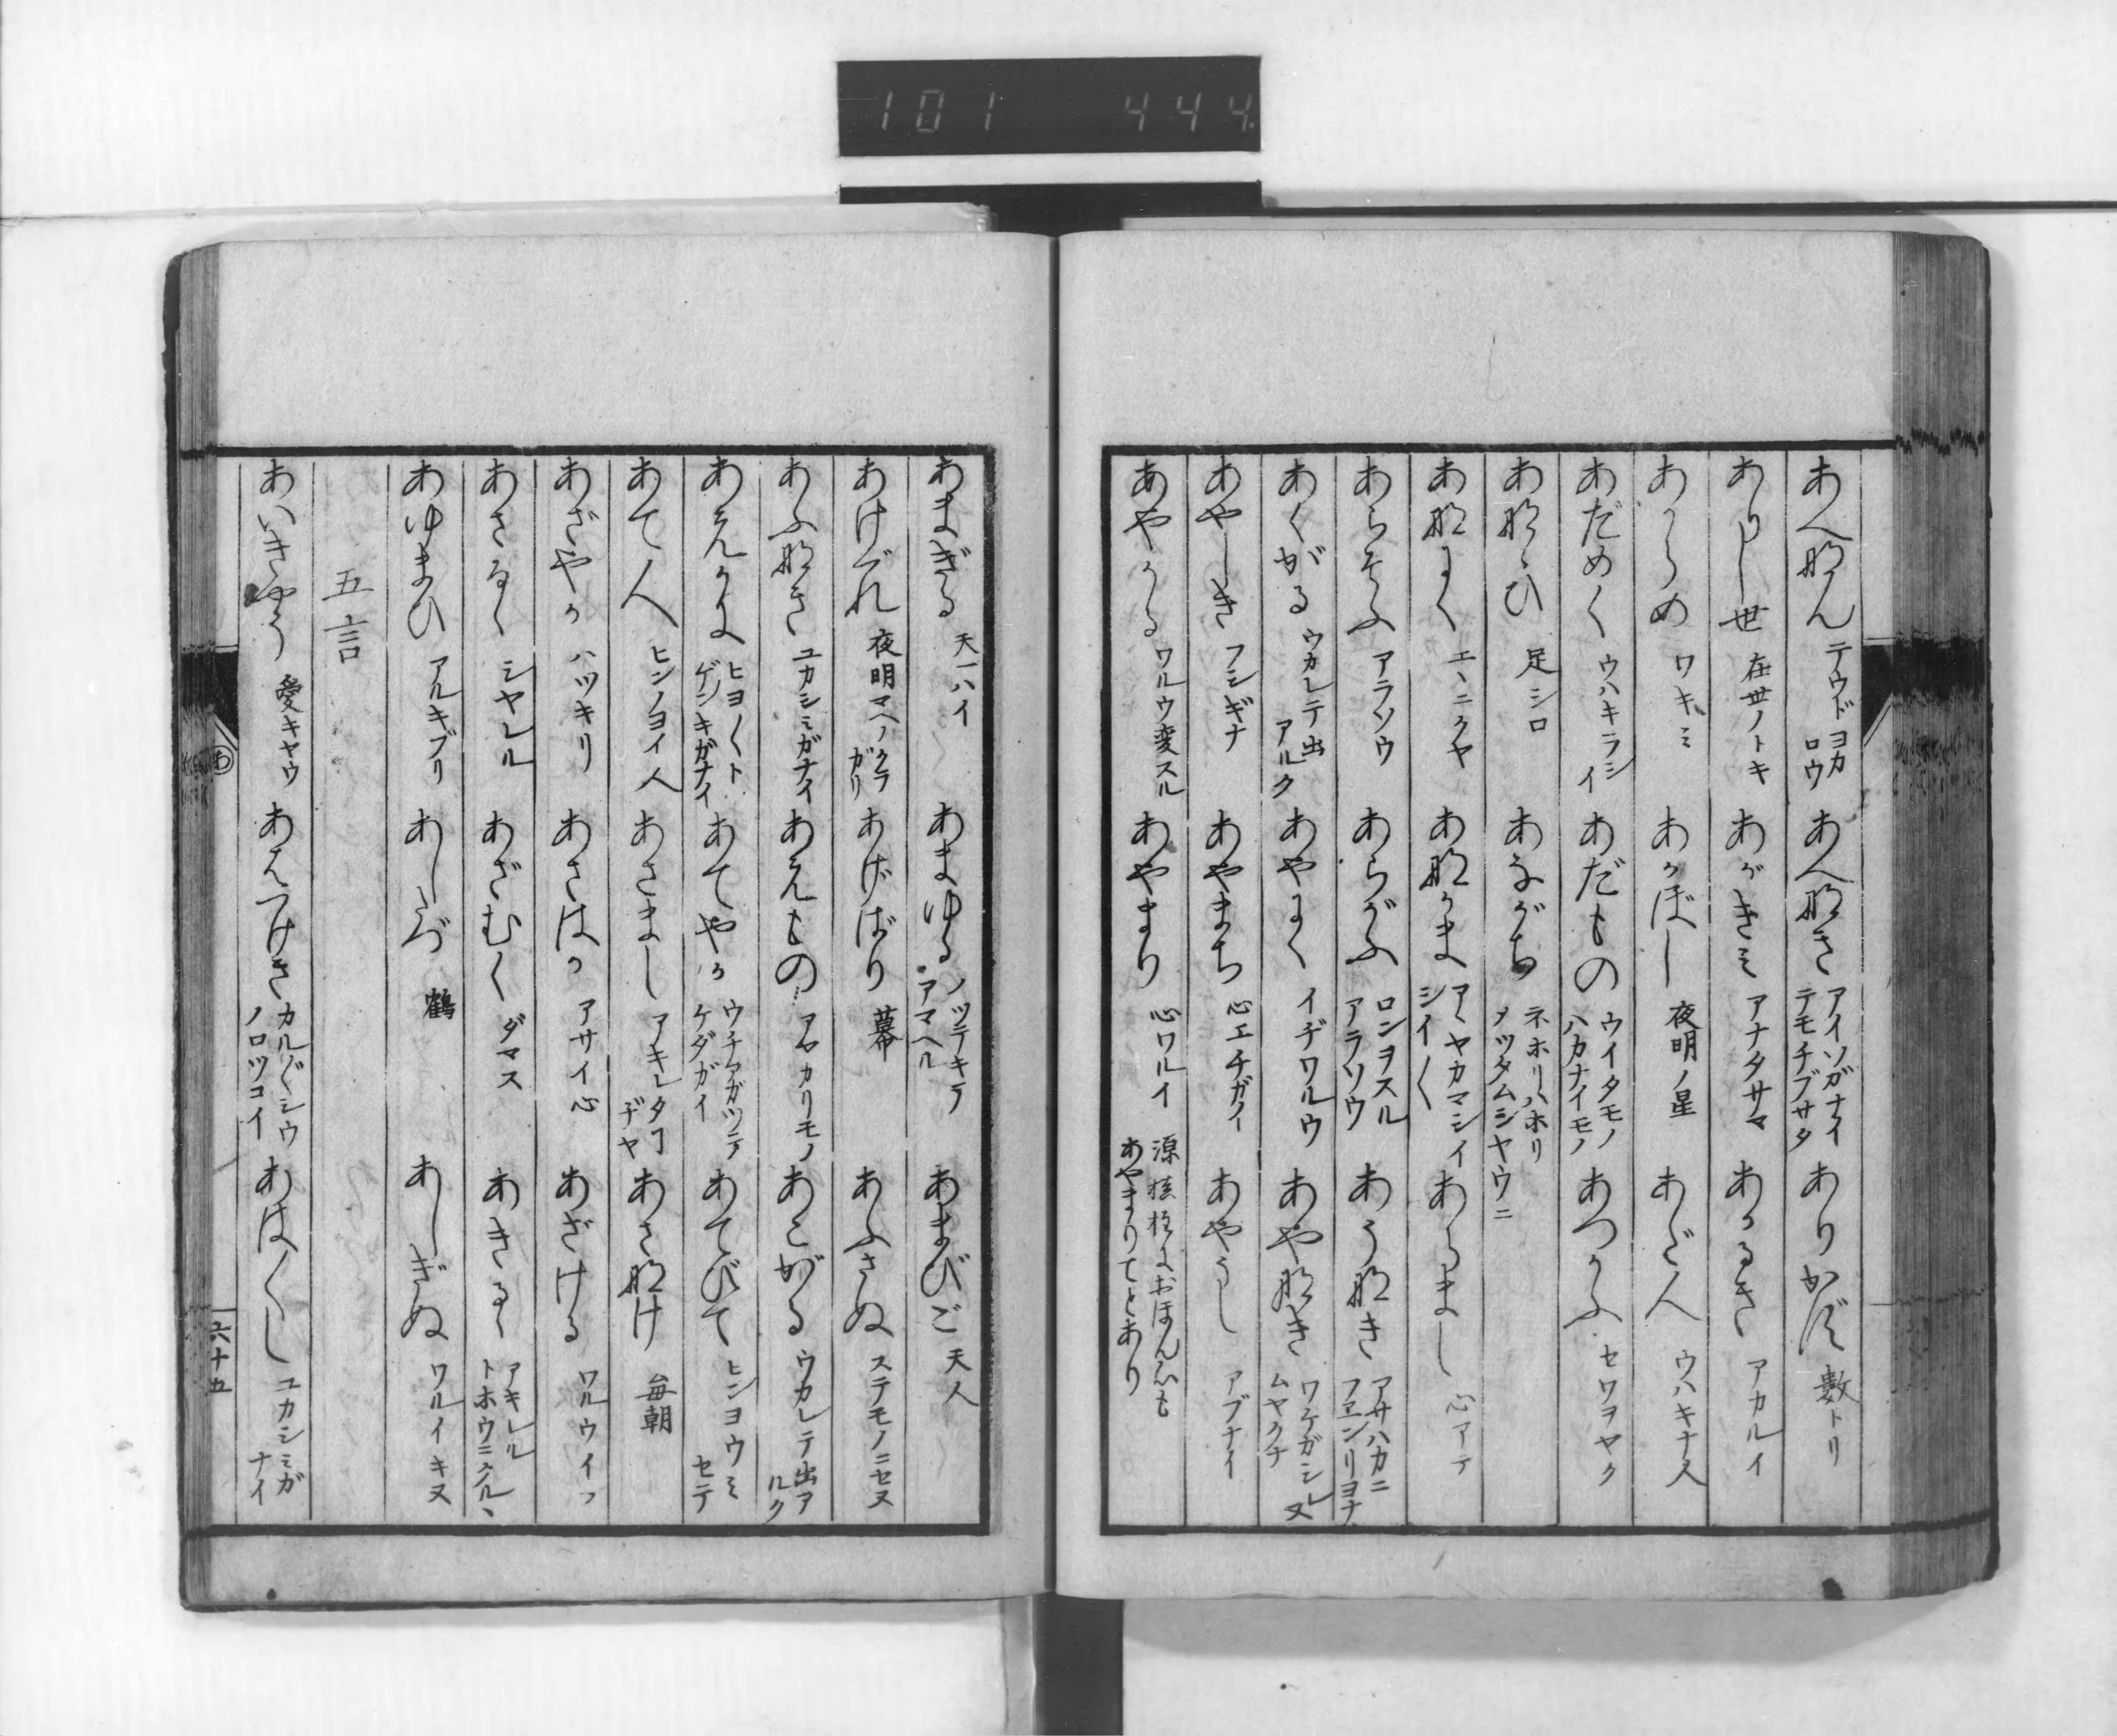 101 444
あへなん テウドヨカロウ あへなき アイソガナイ テモチブサタ ありかず 數トリ
ありし世 在世ノトキ あがきみ アナタサマ あかるき アカルイ
あからめ ワキミ あかぼし 夜明ノ星 あだ人 ウハキナ人
あだめく ウハキラシイ あだもの ウイタモノ ハカナイモノ あつかふ セワヲヤク
あなゝひ 足シロ あながち ネホリハホリ メツタムシヤウニ
あなにく エヽニクヤ あなかま アヽヤカマシイ シイ〱 あらまし 心アテ
あらそふ アラソウ あらがふ ロンヲスル アラソウ あうなき アサハカニ フエンリヨナ
あくがる ウカレテ出アルク あやにく イヂワルウ あやなき ワケガシレヌ ムヤクナ
あやしき フシギナ あやまち 心エチガイ あやうし アブナイ
あやかる ワルウ変スル あやまり 心ワルイ 源 おほん心も あやまりてとあり
あまぎる 天一ハイ あまゆる ノツテキテ アマヘル あまびと 天人
あけぐれ 夜明マヘノクラガリ あげばり 幕 あふさぬ ステモノニセヌ
あふなき ユカシミガナイ あえもの アヤカリモノ あこがる ウカレテ出アルク
あえかに ヒヨ〱ト ゲンキガナイ あてやか ウチアガツテ ケダガイ あてびて ヒンヨウミセテ
あて人 ヒンノヨイ人 あさまし アキレタヿヂヤ あさなけ 毎朝
あざやか ハツキリ あさはか アサイ心 あざける ワルウイフ
あさるゝ シヤレル あざむく ダマス あきるゝ アキレル トホウニクルヽ
あゆまひ アルキブリ あしたづ 鶴 あしぎぬ ワルイキヌ
五言
あいきやう 愛キヤウ あえつけき カル〲シウ ノロツコイ あは〱し ユカシミガナイ
あ
六十五